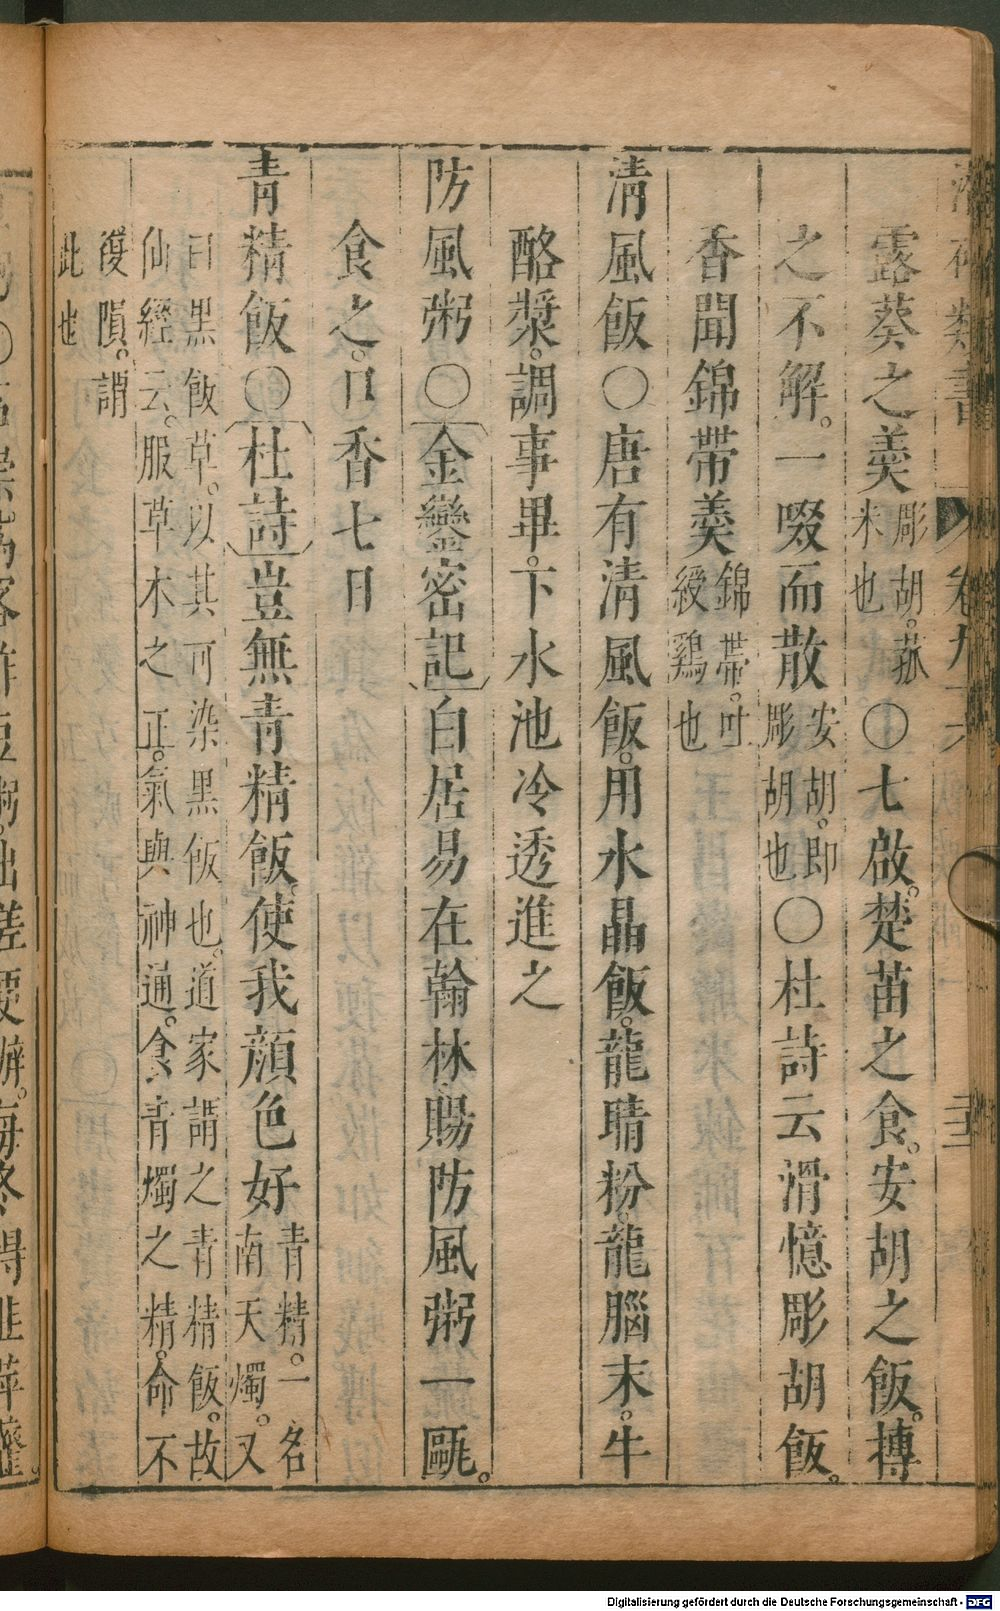 露葵之羹彫胡。菰米也〇七啟。楚苗之食。安胡之飯。摶
之不解。一啜而散安胡。即彫胡也〇杜詩云滑憶彫胡飯。
香聞錦帶羹錦帶。吐綬鷄也
清風飯〇唐有清風飯。用水晶飯。龍睛粉。龍腦末。牛
酪漿。調事畢。下水池冷透進之
防風粥〇金鑾密記白居易在翰林賜防風粥一甌。
食之。口香七日
青精飯〇杜詩豈無青精飯。使我顔色好青精。一名南天燭。又
曰黑飯草。以其可染黑飯也。道家謂之青精飯。故
仙經云。服草木之正。氣與神通。食青燭之精。命不
復隕。謂
此也
Digitalisierung gefördert durch die Deutsche Forschungsgemeinschaft - DFG